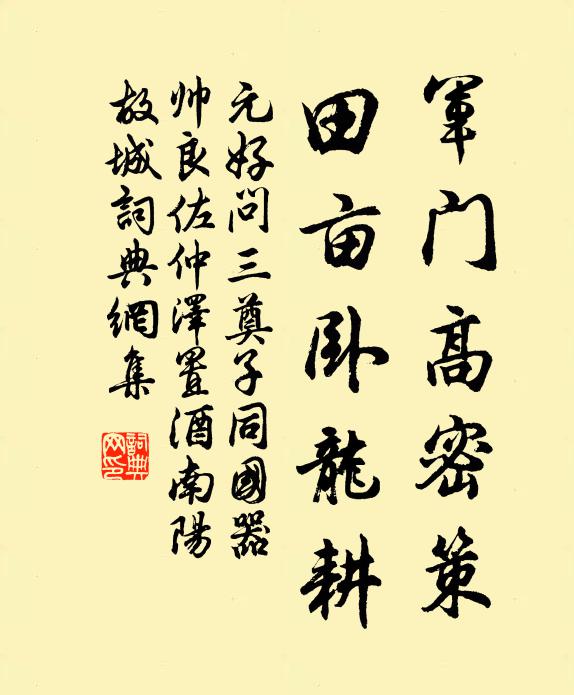 军门高密策
田亩卧龍耕
元好问三奠子同國器
帅良佐仲澤置酒南陽
故城詞典網集
詞典
网印